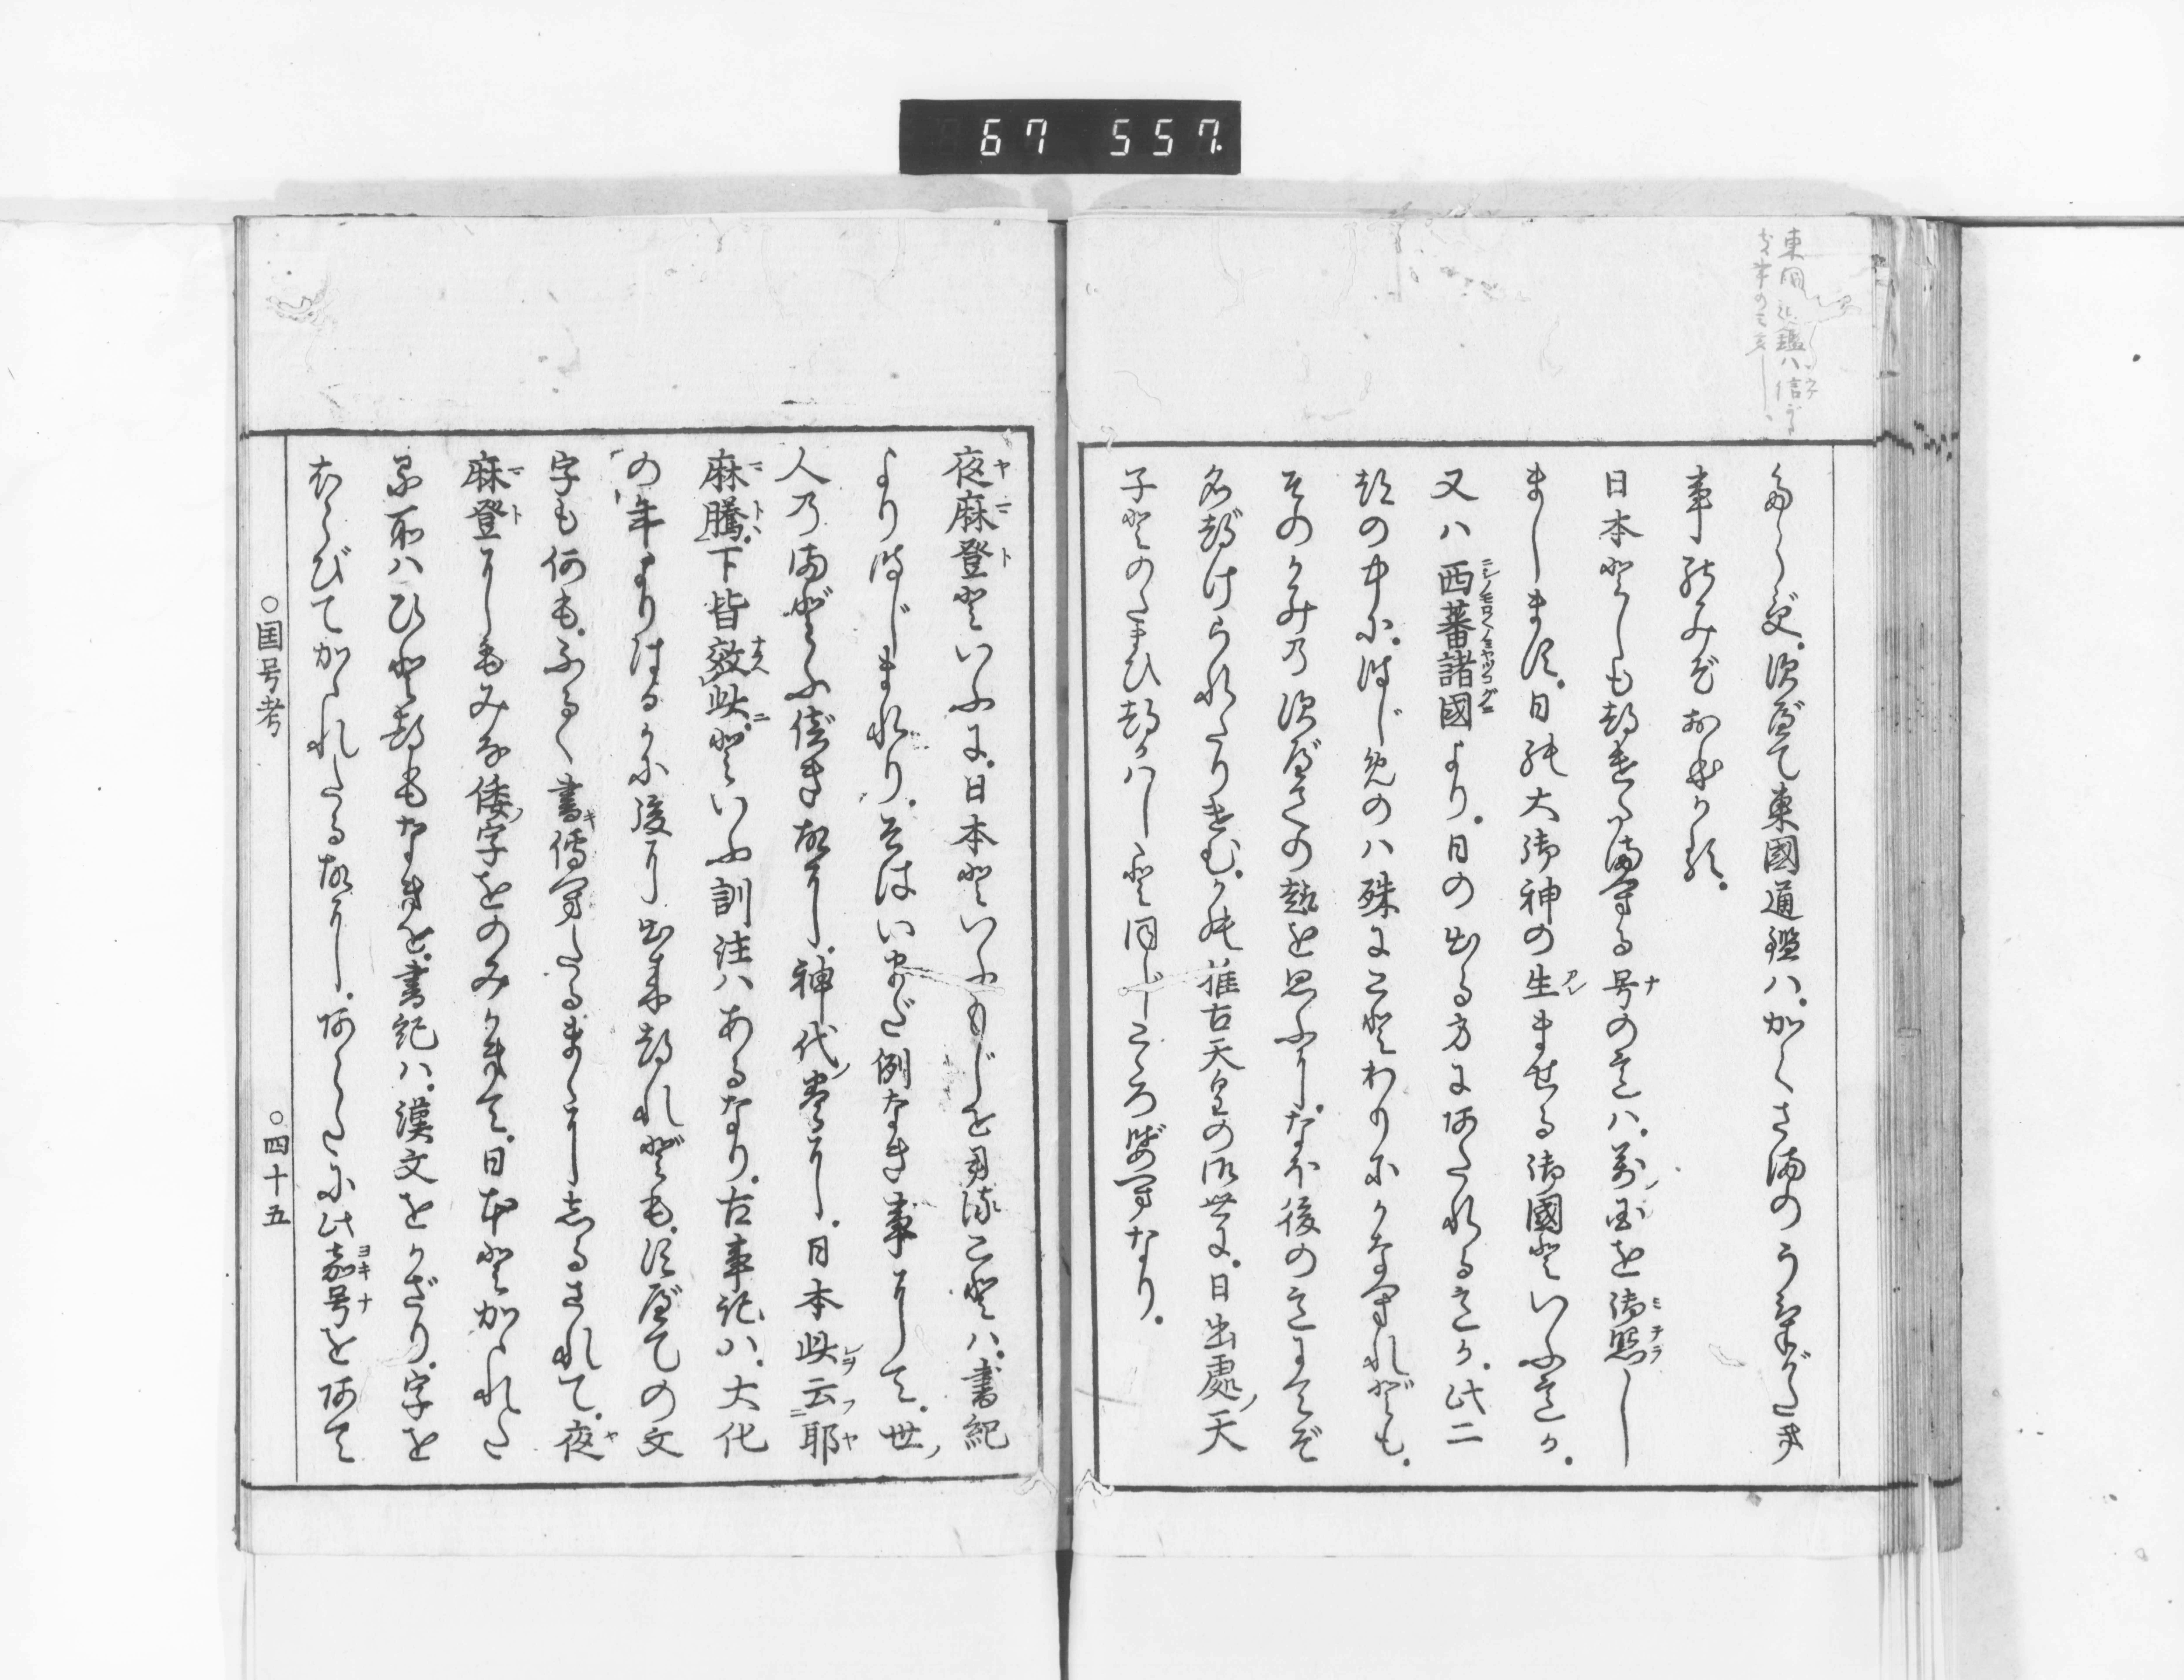 すべて東國通鑑ハ、かくさまのうけがたき
事のみぞおほかる、
日本としもつけたまへる号の意ハ、萬ノ国を御照し
まします、日の大御神の生ませる御國といふ意か、
又ハ西蕃諸國より、日の出る方にあたれる意か、此二
つの中に、はじめのハ殊にことわりにかなへれども、
そのかみのすべての趣を思ふに、なほ後の意にてぞ
名づけられたりけむ、かの推古天皇の御世に、日出處ノ天
子とのたまひつかハしと同じこゝろばへなり、
夜麻登といふに、日本といふもじを用ることハ、書紀
よりはじまれり、そはいまだ例なき事にして、世ノ
人のまどふべき故に、神代ノ巻に、日本此云耶
麻騰、下皆效此、といふ訓注ハあるなり、古事記ハ、大化
の年よりはるかに後に出来つれども、すべての文
字も何も、ふるく書傳へたるまゝにしるされて、夜
麻登にもみな倭ノ字をのみかきて、日本とかゝれた
る所ハひとつもなきを、書紀ハ、漢文をかざり、字を
えらびてかゝれたる故に、あらたに此嘉号をあて
○国号考
○四十五
67 557.